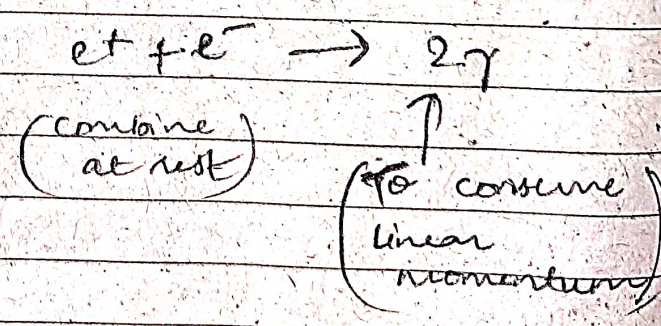 e+ + e- → 2γ
(combine
at rest)
(To conserve
linear
momentum)